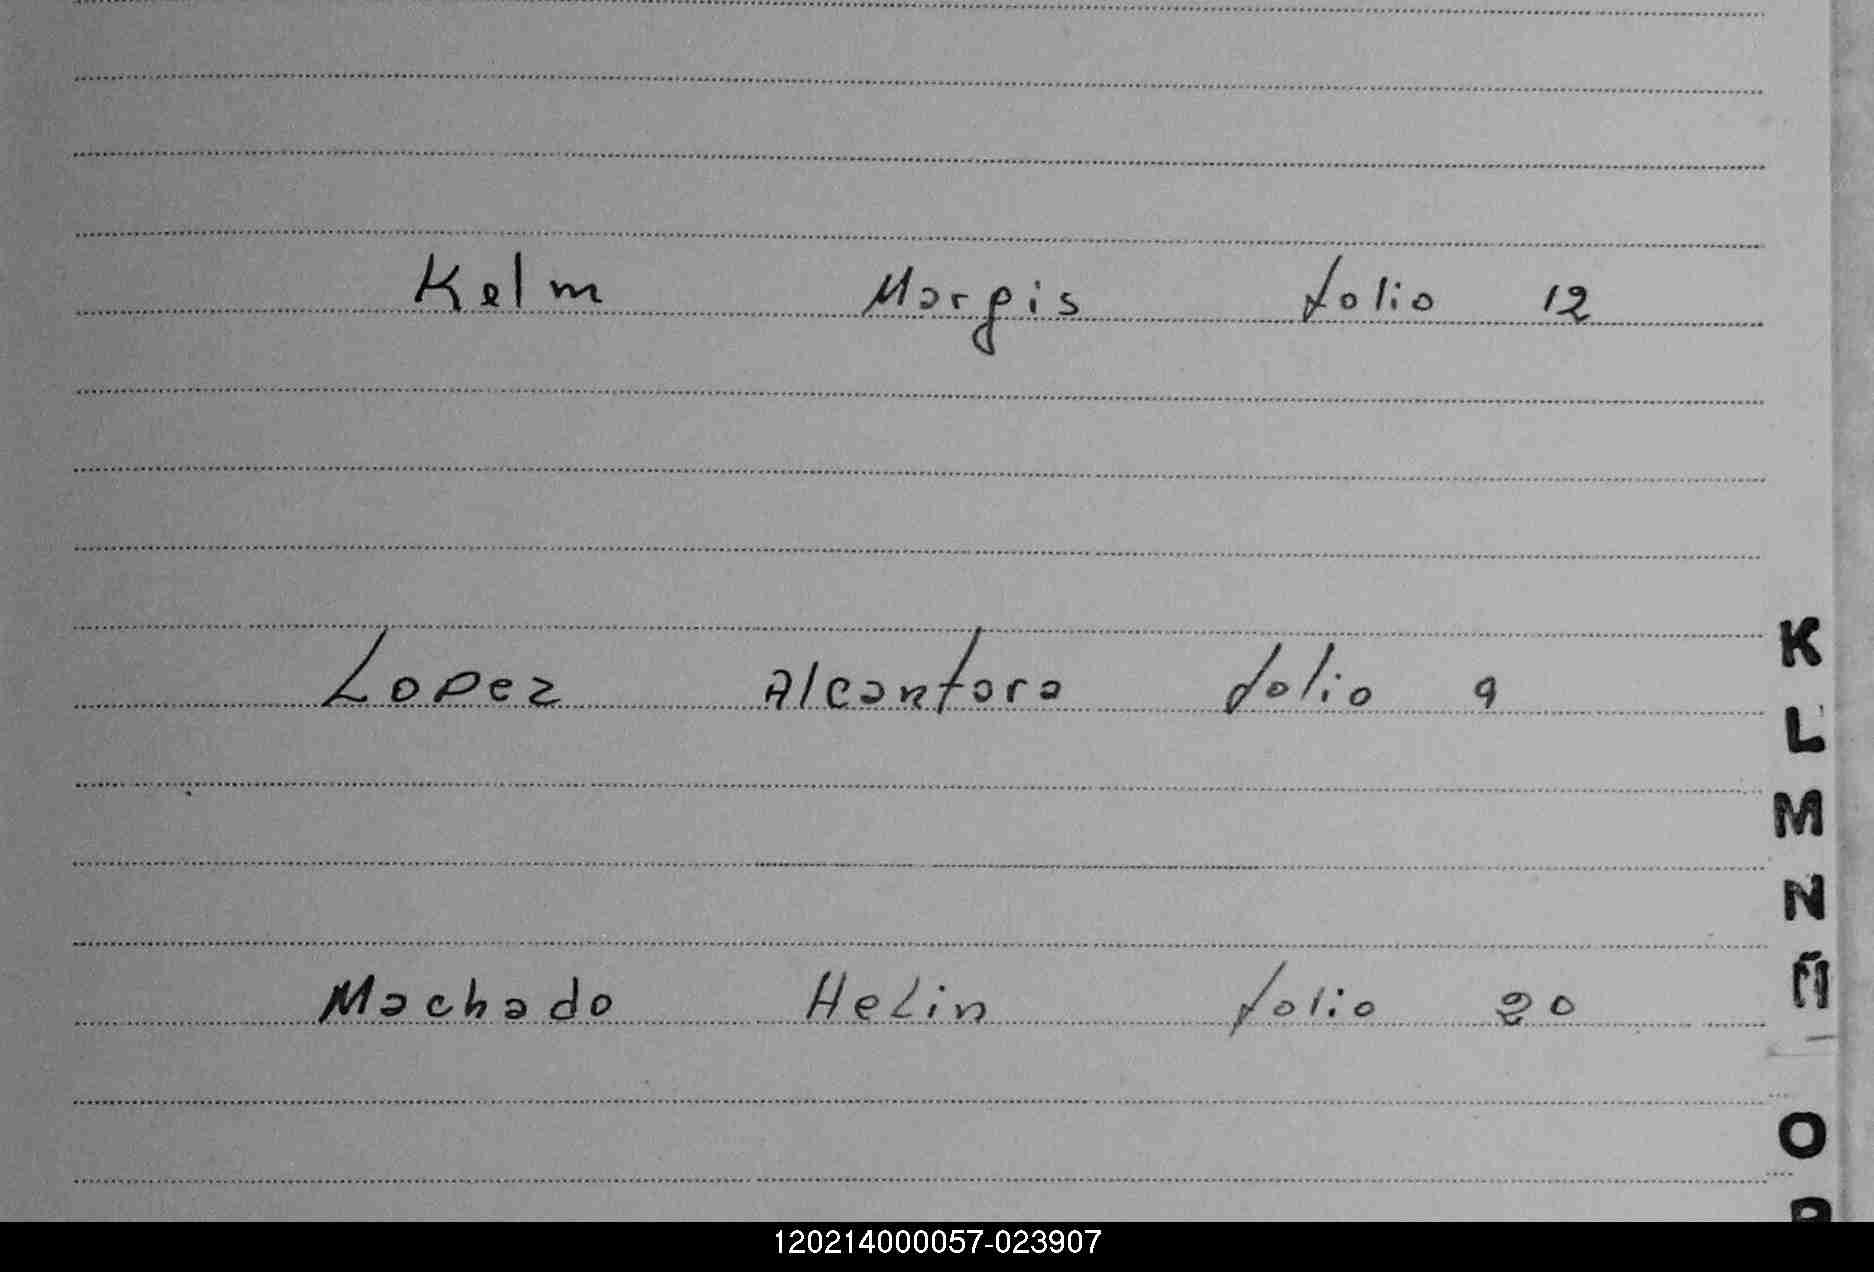 Kelm Margis folio 12
Lopez Alcantara folio 9
K
L
M
N
Ñ
Machado Helin folio 20
O
P
120214000057-023907